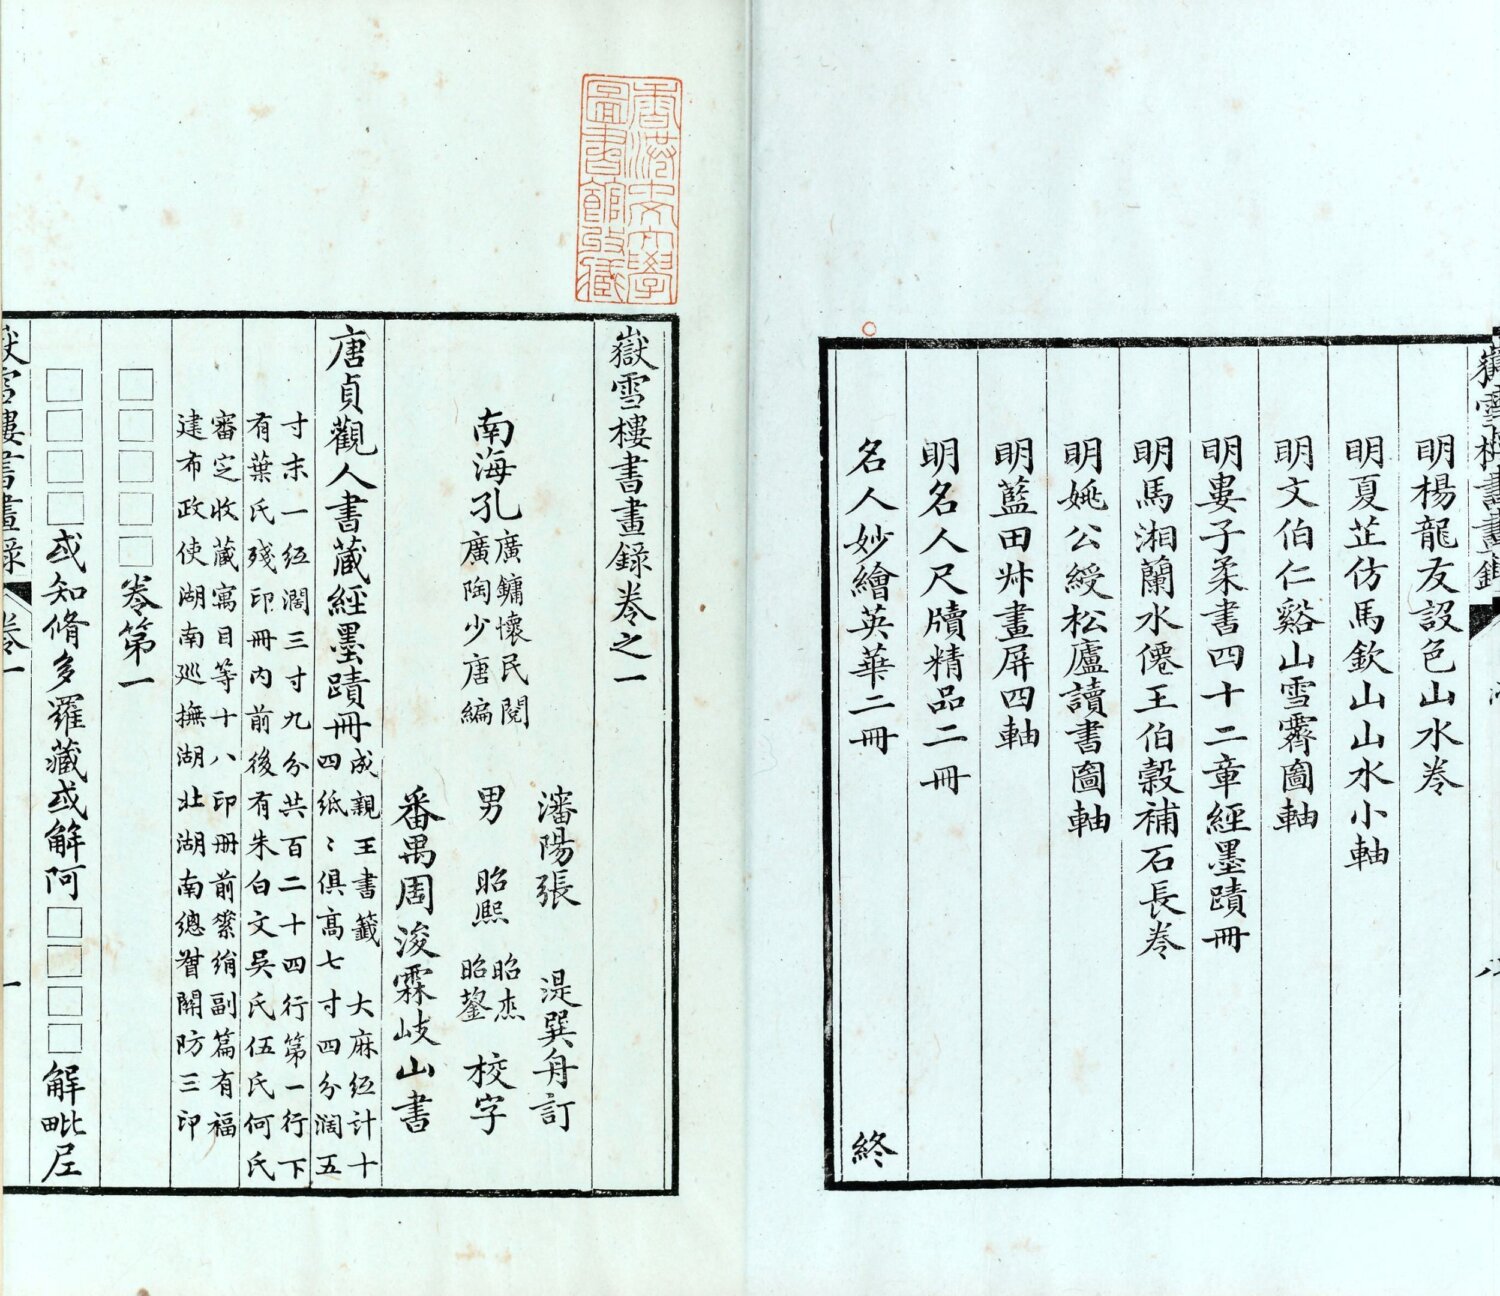 明楊龍友設色山水卷
明夏芷仿馬欽山山水小軸
明文伯仁谿山雪霽圖軸
明婁子柔書四十二章經墨蹟冊
明馬湘蘭水僊王伯榖補石長卷
明姚公綬松廬讀書圖軸
明藍田叔畫屏四軸
明名人尺牘精品二冊
名人妙繪英華二冊
終
香港中文大學
圖書館收藏
嶽雪樓書畫錄卷之一
瀋陽張　湜巽舟訂
南海孔
廣鏞懷民閱
廣陶少唐編
男
昭熙
昭杰
昭鋆
校字
番禺周浚霖岐山書
唐貞觀人書藏經墨蹟冊
成親王書籤　大麻紙計十
四紙〻俱高七寸四分濶五
寸末一紙濶三寸九分共百二十四行第一行下
有葉氏殘印冊内前後有朱白文吳氏伍氏何氏
審定收藏寓目等十八印冊前綮綃副篇有福
建布政使湖南巡撫湖北湖南總督關防三印
□□□□□卷第一
□□□□或知脩多羅藏或解阿□□□□解毗尼
嶽雪樓書畫錄
卷一
一